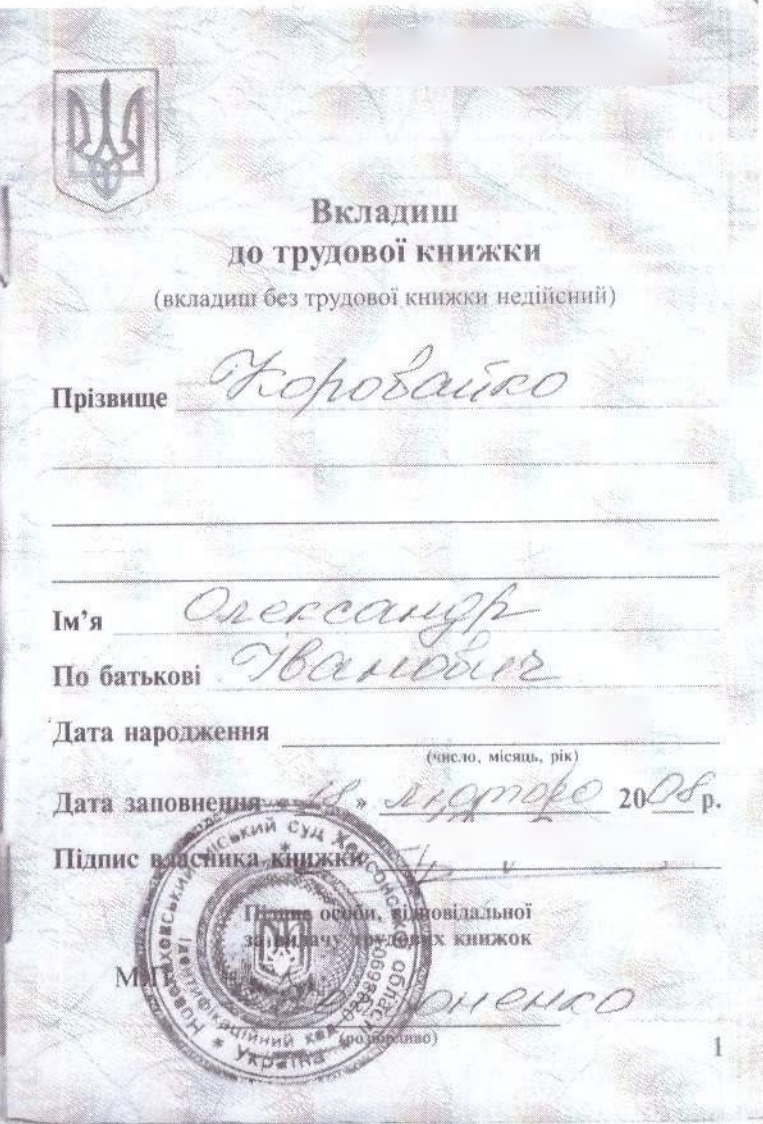 Вкладиш
до трудової книжки
(вкладиш без трудової книжки недійсний)
Прізвище Коровайко
Ім'я Олександр
По батькові Іванович
Дата народження
(число, місяць, рік)
Дата заповнення « 18 » лютого 2008 р.
Підпис власника книжки
Підпис особи, відповідальної
за видачу трудових книжок
М.П.
(розбірливо)
Новокаховський міський суд Херсонської області
* Україна *
Ідентифікаційний код
1